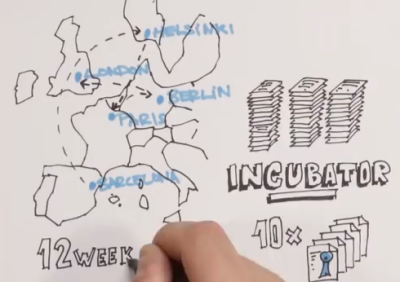 HELSINKI
LONDON
BERLIN
PARIS
BARCELONA
INCUBATOR
12 WEEK
10x